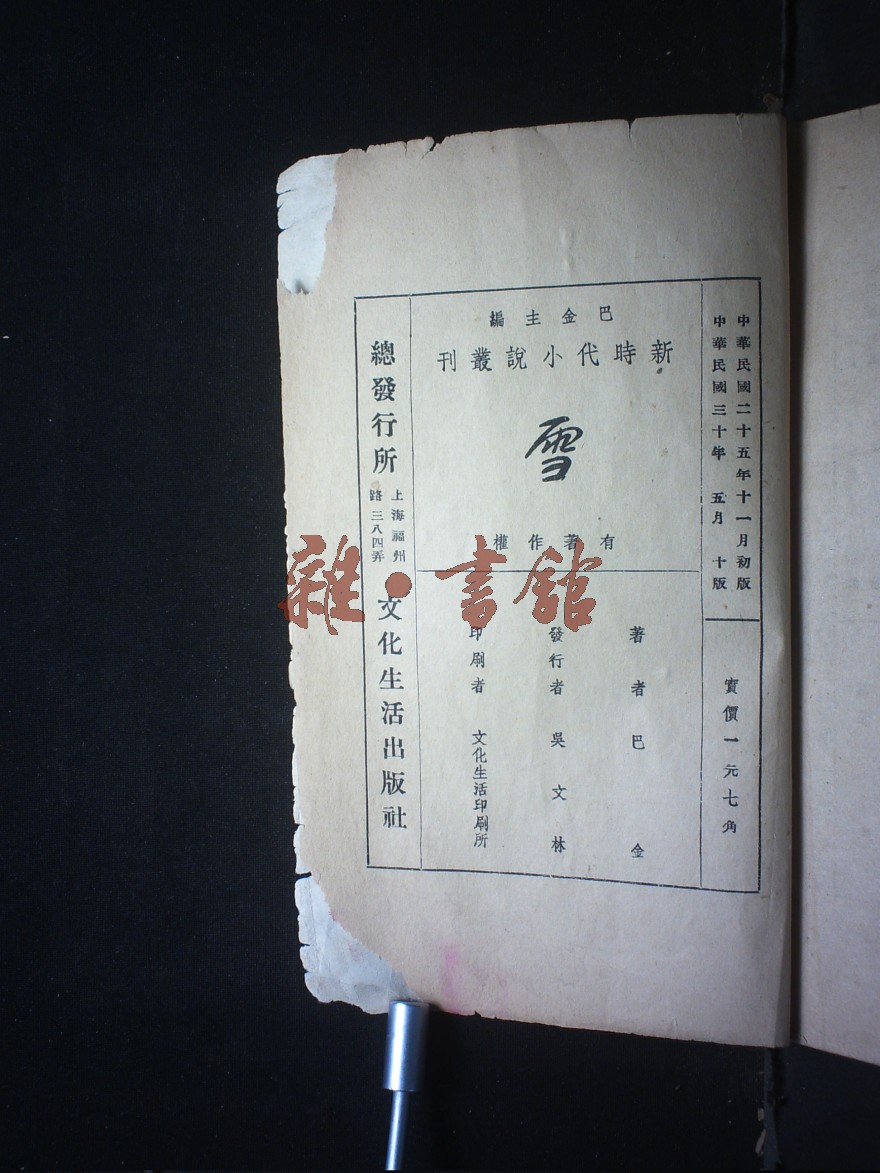 中華民國二十五年十一月初版
中華民國三十年五月十版
實價一元七角
巴金主編
新時代小說叢刊
雪
有著作權
著者巴金
發行者吳文林
印刷者文化生活印刷所
總發行所
上海福州
路三八四弄
文化生活出版社
雜·書館